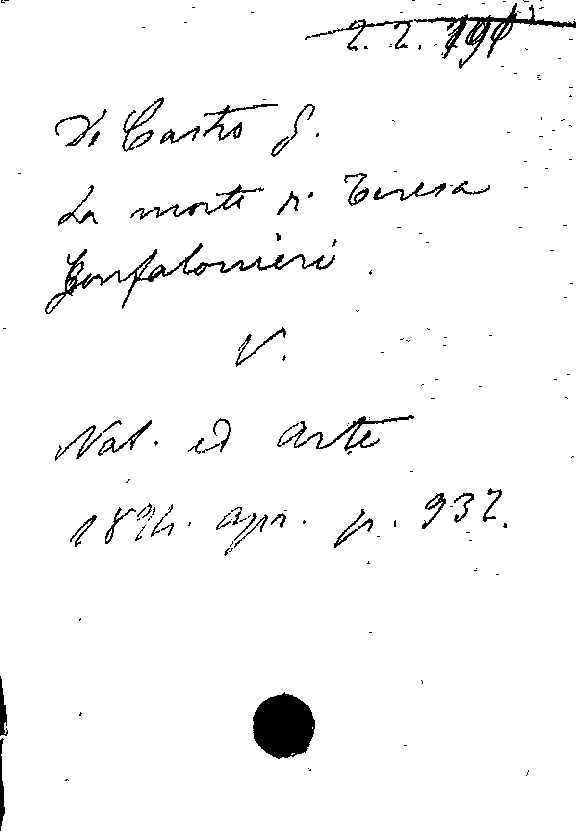 2. 2.
Di Castro G.
La morte di Teresa
Gonfalonieri.
V.
Nat. ed Arte
1894. apr. p. 932.